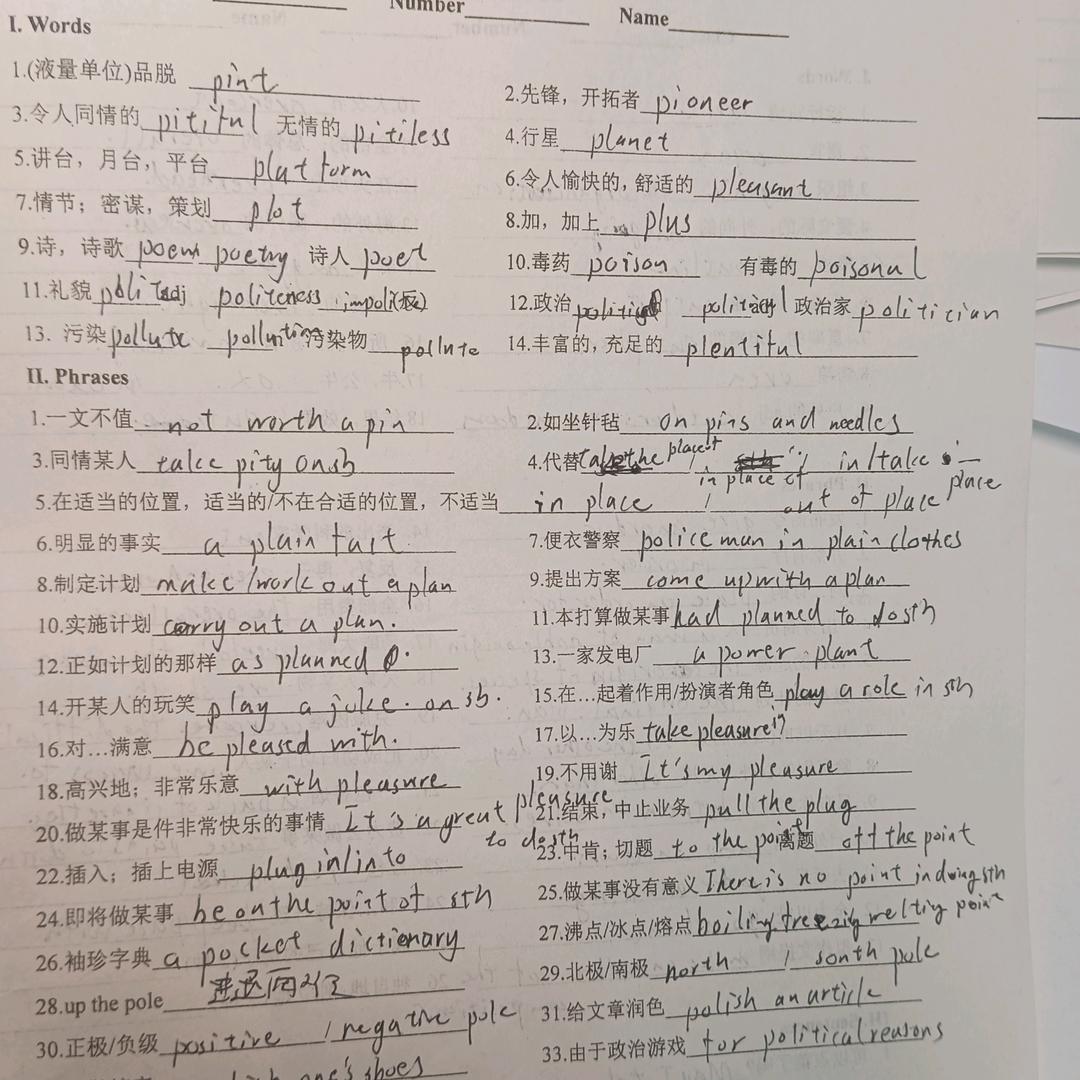 Number Name
I. Words
1.(液量单位)品脱 pint
2.先锋，开拓者 pioneer
3.令人同情的 pitiful 无情的 pitiless
4.行星 planet
5.讲台，月台，平台 platform
6.令人愉快的, 舒适的 pleasant
7.情节；密谋，策划 plot
8.加，加上 plus
9.诗，诗歌 poem poetry 诗人 poet
10.毒药 poison 有毒的 poisonul
11.礼貌 adj politeness
12.政治 政治家 politician
13. 污染 pollute 污染物 pollute
14.丰富的, 充足的 plentiful
II. Phrases
1.一文不值 not worth a pin
2.如坐针毡 on pins and needles
3.同情某人 take pity on sb
4.代替 take the place of / in place of / in/take place
5.在适当的位置，适当的/不在合适的位置，不适当 in place / out of place
6.明显的事实 a plain fact
7.便衣警察 police man in plain clothes
8.制定计划 make /work out a plan
9.提出方案 come up with a plan
10.实施计划 carry out a plan.
11.本打算做某事 had planned to do sth
12.正如计划的那样 as planned
13.一家发电厂 a power plant
14.开某人的玩笑 play a joke. on sb.
15.在…起着作用/扮演者角色 play a role in sth
16.对…满意 be pleased with.
17.以…为乐 take pleasure in
18.高兴地；非常乐意 with pleasure
19.不用谢 It's my pleasure
20.做某事是件非常快乐的事情 It's a great pleasure to do sth
21.结束，中止业务 pull the plug
22.插入；插上电源 plug in/into
23.中肯；切题 to the point 离题 off the point
24.即将做某事 be on the point of sth
25.做某事没有意义 There is no point in doing sth
26.袖珍字典 a pocket dictionary
27.沸点/冰点/熔点 boiling freezing melting point
28.up the pole 进退两难
29.北极/南极 north / south pole
30.正极/负级 positive / negative pole
31.给文章润色 polish an article
33.由于政治游戏 for political reasons
one's shoes